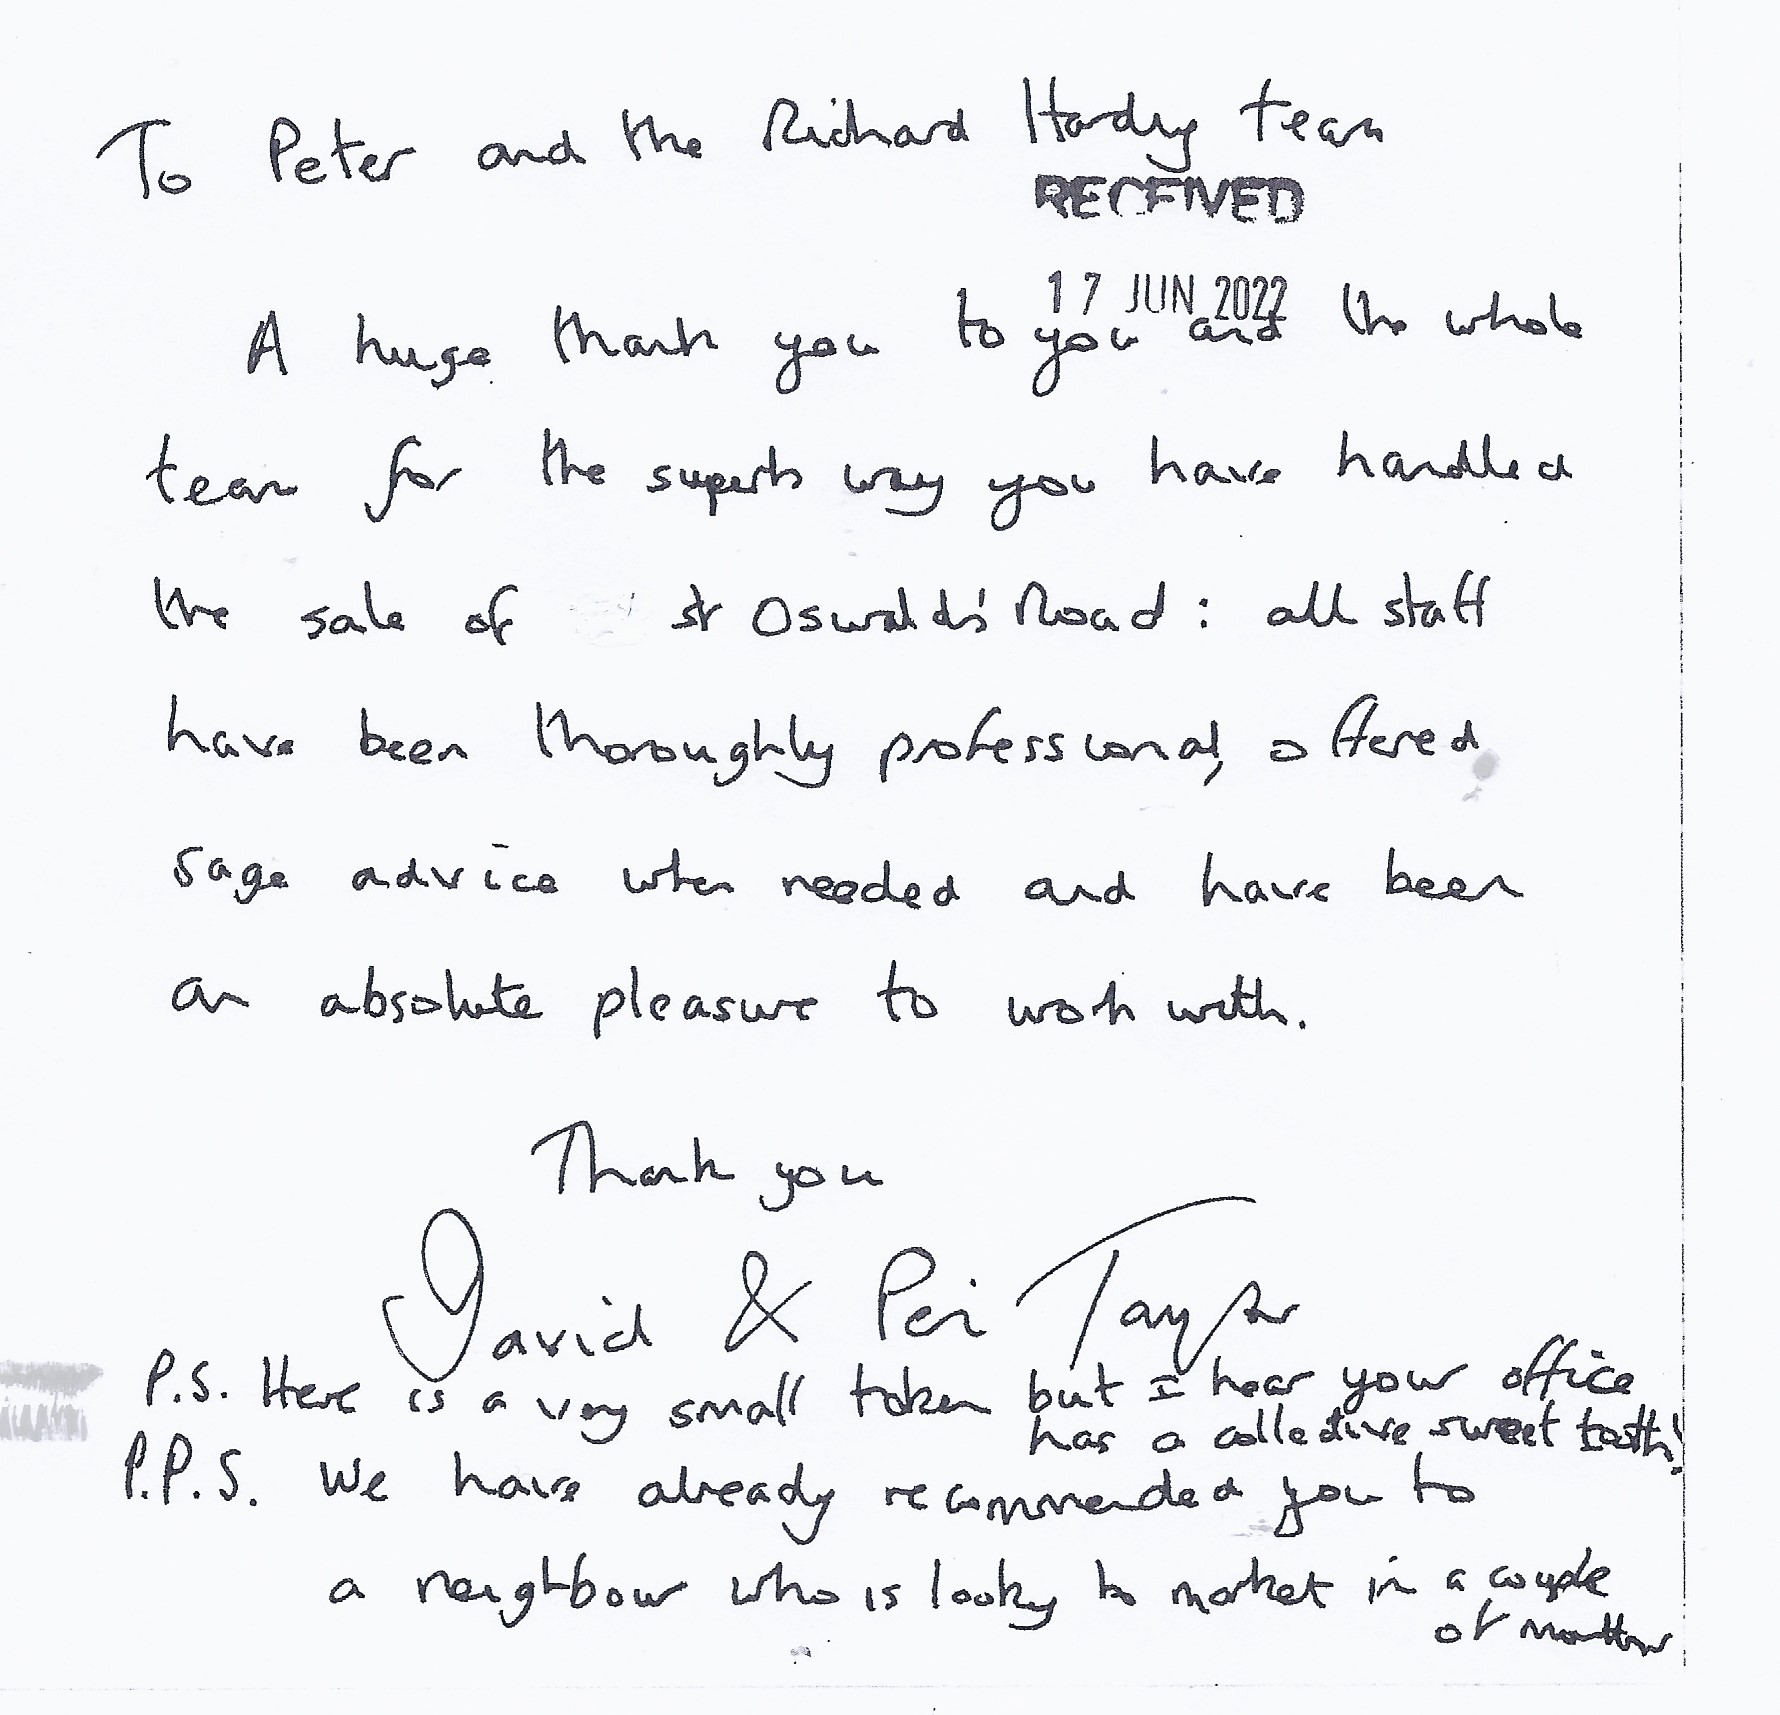 To Peter and the Richard Hardy team
RECEIVED
17 JUN 2022
A huge thank you to you and the whole
team for the superb way you have handled
the sale of St Oswald's Road: all staff
have been thoroughly professional, offered
sage advice when needed and have been
an absolute pleasure to work with.
Thank you
David & Peri Taylor
P.S. Here is a very small token but I hear your office
has a collective sweet tooth!
P.P.S. We have already recommended you to
a neighbour who is looking to market in a couple
of months